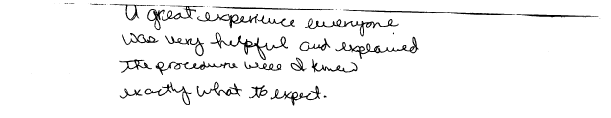 A great experience everyone
was very helpful and explained
the procedure well I knew
exactly what to expect.